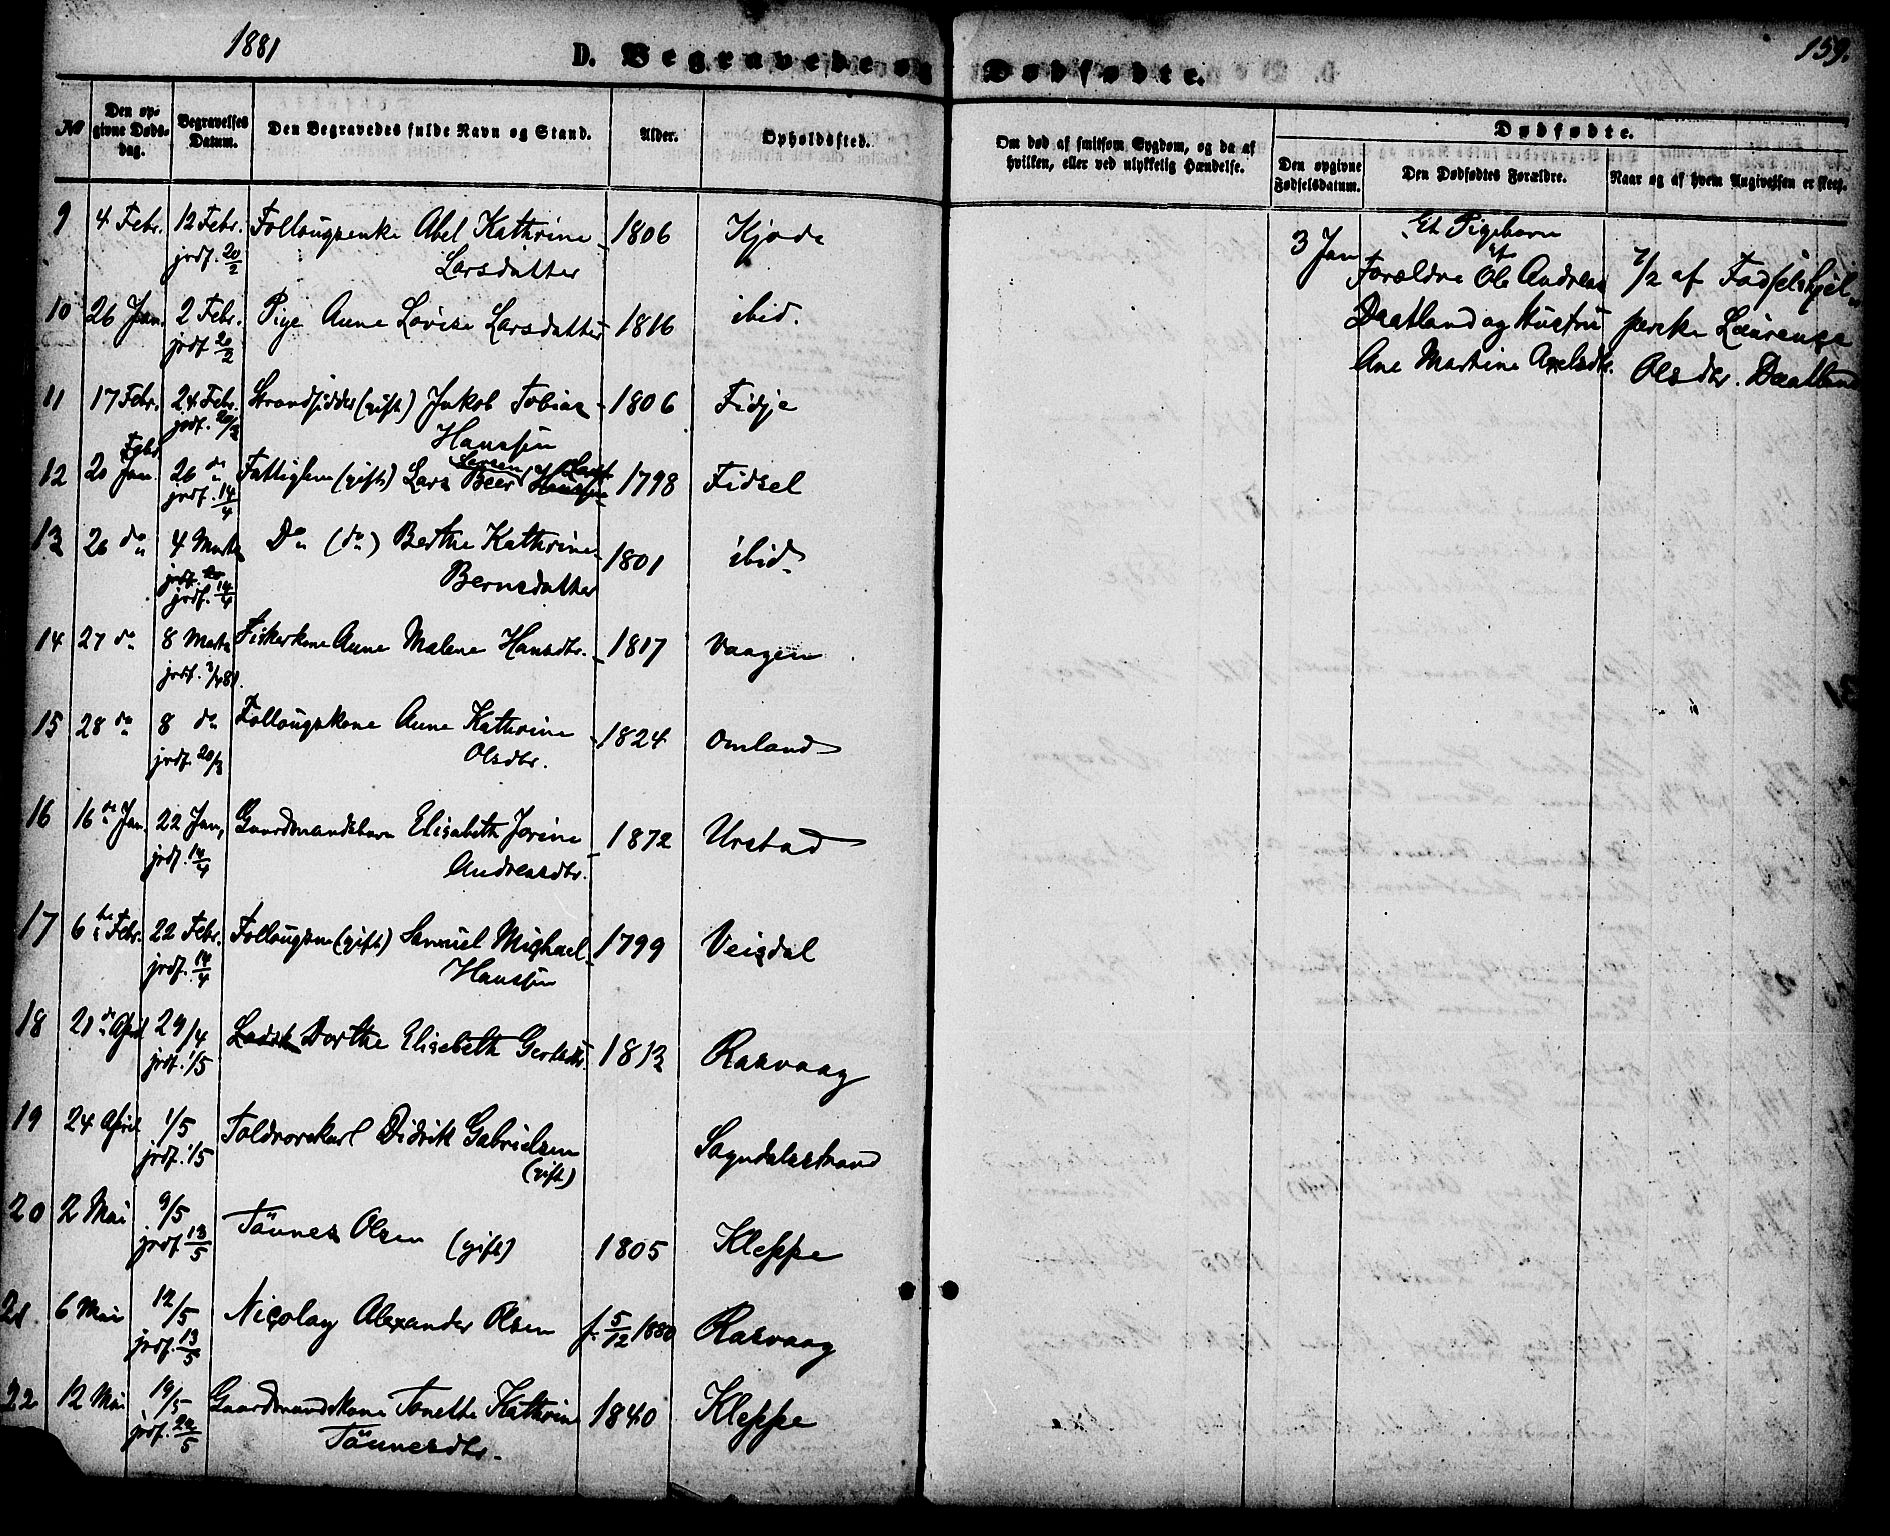 1881
D. Begravede og Dødfødte.
159.
No
Den opgivne Dødsdag.
Begravelses Datum.
Den Begravedes fulde Navn og Stand.
Alder.
Opholdssted.
Om død af smitsom Sygdom, og da af hvilken, eller ved ulykkelig Hændelse.
Dødfødte.
Den opgivne Fødselsdatum.
Den Dødfødtes Forældre.
Naar og af hvem Angivelsen er skeet.
9 4 Febr. 12 Febr. Follougsenke Abel Kathrine 1806 Kjode
jrdf. 20/2 Larsdatter
10 26 Jan. 2 Febr. Pige Anne Lovise Larsdatter 1816 ibid.
jrdf. 20/2
11 17 Febr. 24 Febr. Strandsidder (gift) Jakob Tobias 1806 Fidje
jrdf. 20/3 Hanssen
12 20 Jan. Febr. 26 do Fattiglem (gift) Lars Beer 1798 Fidsel
jrdf. 14/4
13 26 do 4 Marts Do (do) Berthe Kathrine 1801 ibid.
jrdf. 14/4 Berntsdatter
14 27 do 8 Marts Fiskerkone Anne Malene Hansdtr. 1817 Vaagen
jrdf.
15 28 do 8 do Follougskone Anne Kathrine 1824 Omland
jrdf. 20/3 Olsdtr.
16 16de Jan. 22 Jan. Gaardmandsbarn Elisabeth Jorine 1872 Urstad
jrdf. 14/4 Andreasdtr.
17 6te Febr. 22 Febr. Follougsm (gift) Samuel Michael 1799 Veisdal
jrdf. 14/4 Hanssen
18 21de April 29/4 Dorthe Elisabeth 1813 Rasvaag
jrdf. 1/5
19 24 April 1/5 Toldrorskarl Didrik Gabrielsen Sogndalsstrand
jrdf. 1/5 (gift)
20 2 Mai 9/5 Tönnes Olsen (gift) 1805 Kleppe
jrdf. 13/5
21 6 Mai 12/5 Nicolay Alexander Olsen f. 5/12 1880 Rasvaag
jrdf. 13/5
22 12 Mai 19/5 Gaardmandskone Tonette Kathrine 1840 Kleppe
jrdf. 22/5 Tönnesdtr.
3 Jan
Et Pigebarn
af
Forældre Ole Andreas
Daatland og Hustru
Ane Martine Axelsdtr.
7/2 af Fødselshjel-
perske Laurense
Olsdtr. Daatland